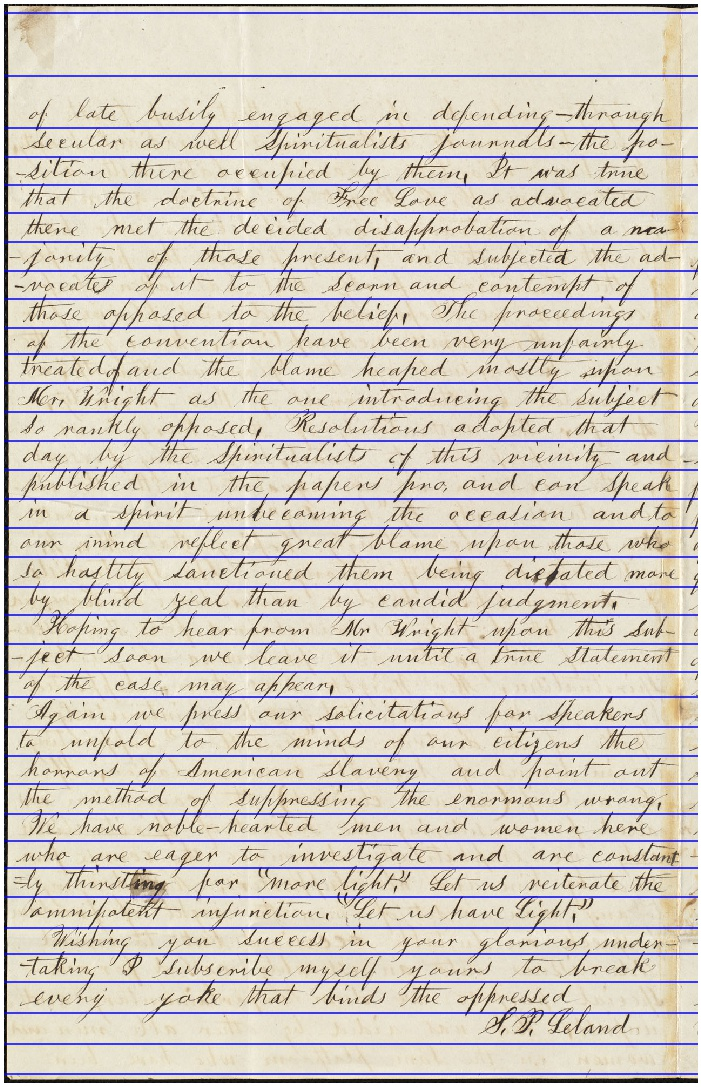 of late busily engaged in defending—through
secular as well Spiritualists journals—the po-
-sition there occupied by them. It was true
that the doctrine of Free Love as advocated
there met the decided disapprobation of a ma-
-jority of those present, and subjected the ad-
-vocates of it to the scorn and contempt of
those opposed to the belief. The proceedings
of the convention have been very unfairly
treated of and the blame heaped mostly upon
Mr. Wright as the one introducing the subject
so rankly opposed. Resolutions adopted that
day by the Spiritualists of this vicinity and
published in the papers pro, and con speak
in a spirit unbecoming the occasion and to
our mind reflect great blame upon those who
so hastily sanctioned them being dictated more
by blind zeal than by candid judgment.
Hoping to hear from Mr Wright upon this sub-
-ject soon we leave it until a true statement
of the case may appear.
Again we press our solicitations for speakers
to unfold to the minds of our citizens the
horrors of American slavery and point out
the method of suppressing the enormous wrong.
We have noble-hearted men and women here
who are eager to investigate and are constant-
-ly thirsting for "more light." Let us reiterate the
omnipotent injunction. "Let us have Light."
Wishing you success in your glorious under-
-taking I subscribe myself yours to break
every yoke that binds the oppressed
S. P. Leland